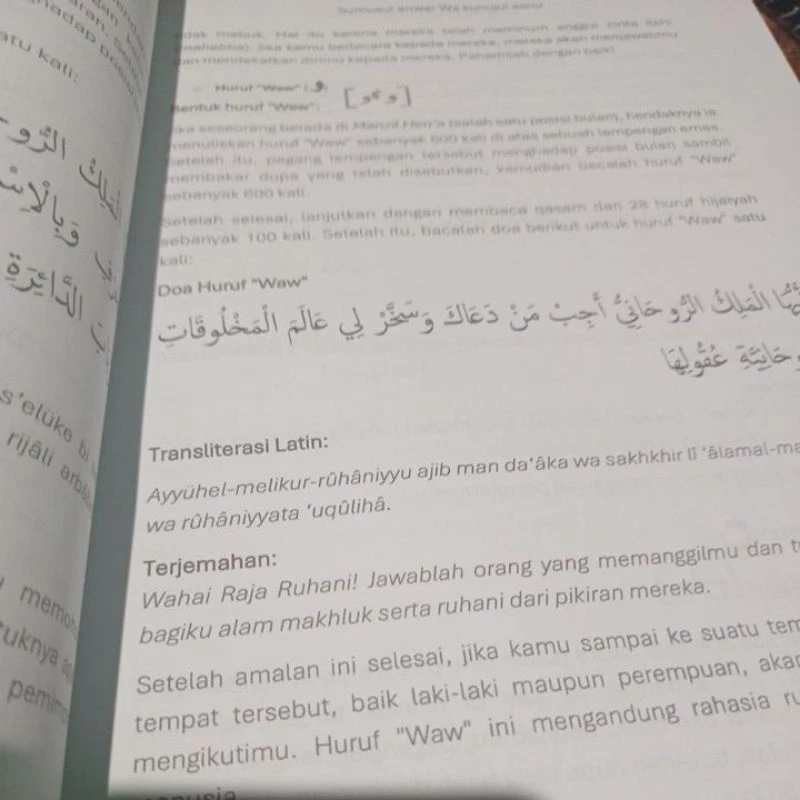 atu kali:
الْمَلِكُ الرُّو
وَبِالْإِسْ
الدَّائِرَةِ
s'elüke bi
rijâli
memoh
Sumusul anwar Wa kunuzul asror
tidak mabuk. Hal itu karena mereka telah meminum anggur cinta ilahi
(mahabba). Jika kamu berbicara kepada mereka, mereka akan menjawabmu
dan mendekatkan dirimu kepada mereka. Pahamilah dengan baik!
Huruf "Waw" (و)
Bentuk huruf "Waw":
Jika seseorang berada di Manzil Hen'a (salah satu posisi bulan), hendaknya ia
menuliskan huruf "Waw" sebanyak 600 kali di atas sebuah lempengan emas.
Setelah itu, pegang lempengan tersebut menghadap posisi bulan sambil
membakar dupa yang telah disebutkan, kemudian bacalah huruf "Waw"
sebanyak 600 kali.
Setelah selesai, lanjutkan dengan membaca qasam dan 28 huruf hijaiyah
sebanyak 100 kali. Setelah itu, bacalah doa berikut untuk huruf "Waw" satu
kali:
Doa Huruf "Waw"
يُّهَا الْمَلِكُ الرُّوحَانِيُّ أَجِبْ مَنْ دَعَاكَ وَسَخَّرْ لِي عَالَمَ الْمَخْلُوقَاتِ
وحَانِيَّةِ عُقُولِهَا
Transliterasi Latin:
Ayyühel-melikur-rûhâniyyu ajib man da'âka wa sakhkhir lî 'âlamal-ma
wa rûhâniyyata 'uqûlihâ.
Terjemahan:
Wahai Raja Ruhani! Jawablah orang yang memanggilmu dan t
bagiku alam makhluk serta ruhani dari pikiran mereka.
Setelah amalan ini selesai, jika kamu sampai ke suatu tem
tempat tersebut, baik laki-laki maupun perempuan, akan
mengikutimu. Huruf "Waw" ini mengandung rahasia ru